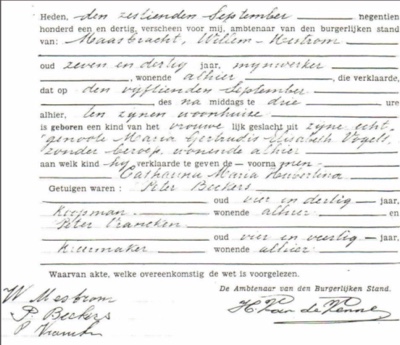 Heden, den zestienden September negentien
honderd een en dertig, verscheen voor mij, ambtenaar van den burgerlijken stand
van: Maasbracht, Willem Mestrom
oud zeven en dertig jaar, mynwerker
, wonende alhier, die verklaarde,
dat op den vyftienden September
, des na middags te drie ure
alhier, ten zynen woonhuize
is geboren een kind van het vrouwelijk geslacht uit zyne echt-
genoote Maria Gertrudis Elisabeth Vogels,
zonder beroep, wonende alhier
aan welk kind hij verklaarde te geven de voorna men
Catharina Maria Hubertina
Getuigen waren: Peter Beckers
oud vier en dertig jaar,
Koopman wonende alhier en
Peter Vrancken
oud vier en veertig jaar,
wonende alhier.
Waarvan akte, welke overeenkomstig de wet is voorgelezen.
De Ambtenaar van den Burgerlijken Stand.
W Mestrom
P. Beckers
P.